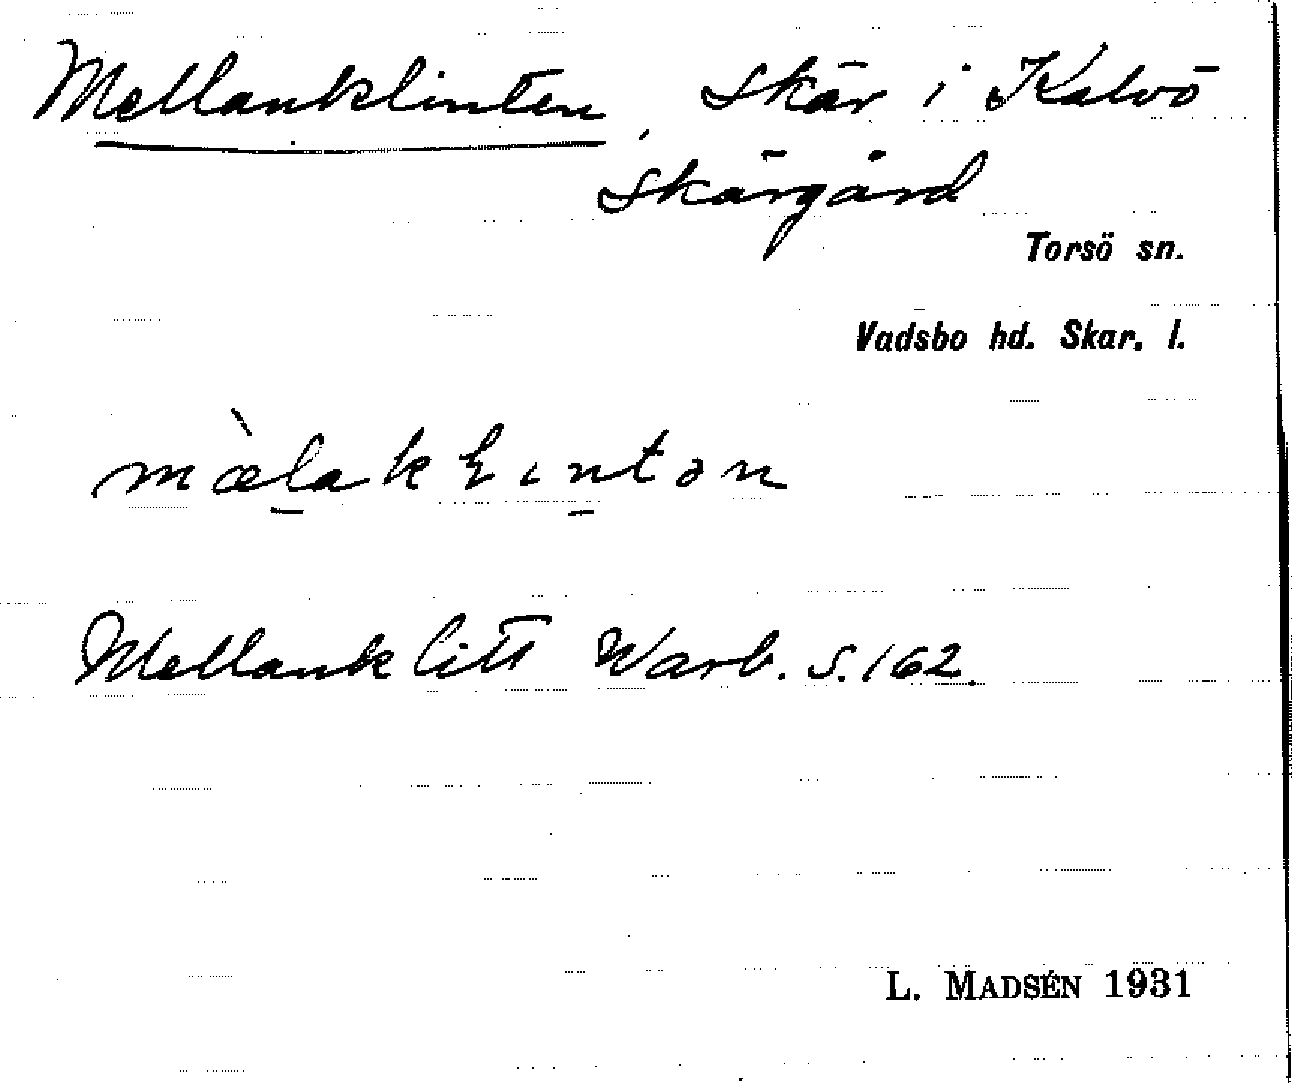 Mellanklinten, Skär i Kalvö
Skärgård
Torsö sn.
Vadsbo hd. Skar. l.
mæ̀lakłıntən
Mellanklitt Warb. S. 162.
L. MADSÉN 1931